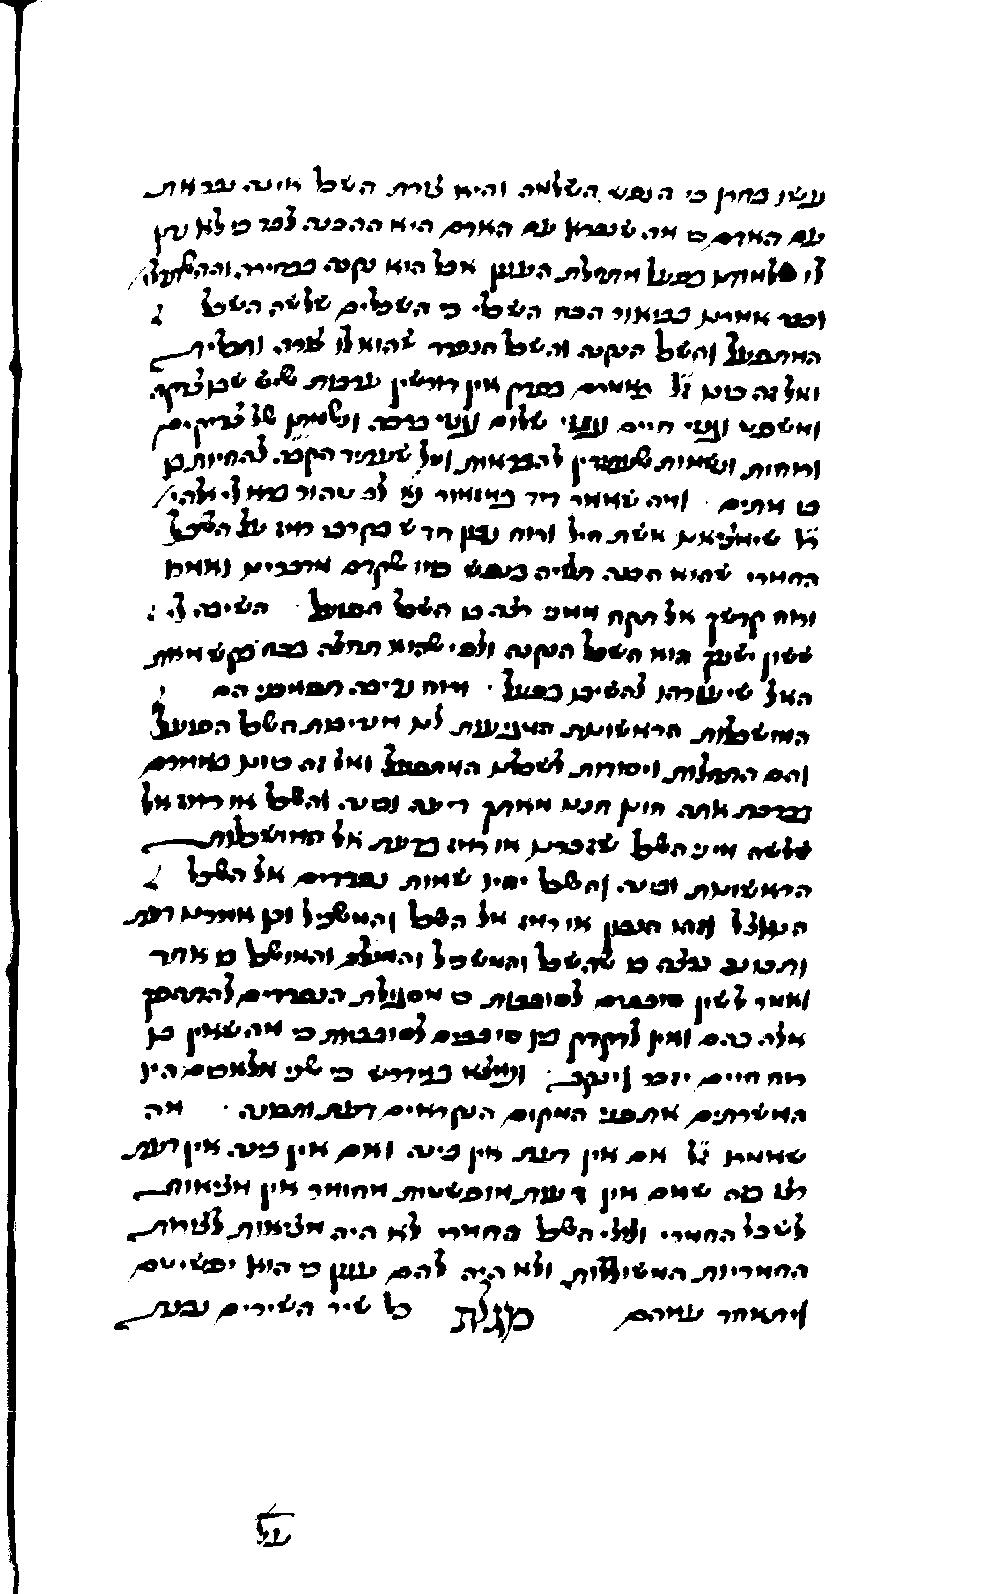 עצמו בחון כי הנפש השלמה והיא צורת השכל אינה נבראת
עם האדם כי מה שנברא עם האדם היא ההכנה לבד כי לא נתן
לו שלמותו בפעל מתחלת הענין אבל הוא נקנה בבחירה וההשתדל׳
וכבר אמרנו בביאור הכח השכלי כי השכלים שלשה השכל
המתפעל והשכל הנקנה והשכל הנפרד שהוא לו צורה ותכלית
ואל זה כוונו ז״ל באמרם בפרק אין דורשין ערבות שיש שבו צדקה
ומשפט וגנזי חיים וגנזי שלום וגנזי ברכה ונשמתן של צדיקים
ורוחות ונשמות שעתידין להבראות וטל שעתיד הקב״ה להחיות בו
מתים וזה שאמר דוד במזמור נ״א לב טהור ברא לי אלהי׳
ורוח נכון חדש בקרבי רמז על השכל
החמרי שהוא הכנה תלויה בנפש כמו שקדם מדברינו ואמרו
ורוח קדשך אל תקח ממני רצה בו השכל הפועל השיבה לי
ששון ישעך הוא השכל הנקנה ולפי שהוא תחלה בכח בקש מאת
האל שיעזרהו להשיבו בפועל ורוח נדיבה תסמכני הם
המושכלות הראשונות המגיעות לנו מערכות השכל הפועל
והם התחלות ויסודות לשכלנו המתפעל ואל זה כוונו באמרם
בברכת אתה חונן חננו מאתך דעה ובינה והשכל או רמזו אל
שלשה מיני השכל שזכרנו או רמזו בדעת אל המושכלות
הראשונות ובינה והשכל יהיו שמות נרדפים אל השכל
הנאצל וזהו הנכון או רמזו אל השכל והמשכיל וכן אומרנו דעת
ותבונה נרצה בו שהשכל והמשכיל והמושכל דבר אחד
ואמר לשון סובבים לסובבות כי מסגולת הנפרדים להתהפך
אלה בהם ואין לדקדק בין סובבים לסובבות כי מה שאין בו
רוח חיים יזכר וינקב ונמצא במדרש כי שני מלאכים היו
המשרתים את פני המקום הנקראים דעת ותבונה מה
שאמרו ז״ל אם אין דעת אין בינה ואם אין בינה אין דעת
רצו בזה שאם אין דעת מופשטות מחומר אין מציאות
לשכל החמרי ולולי השכל החמרי לא היה מציאות לצורות
החמריות המושכלות ולא היה להם ענין כי הוא יפשיטם
ויתאחד עמהם מגלת כל שיר השירים נבנת